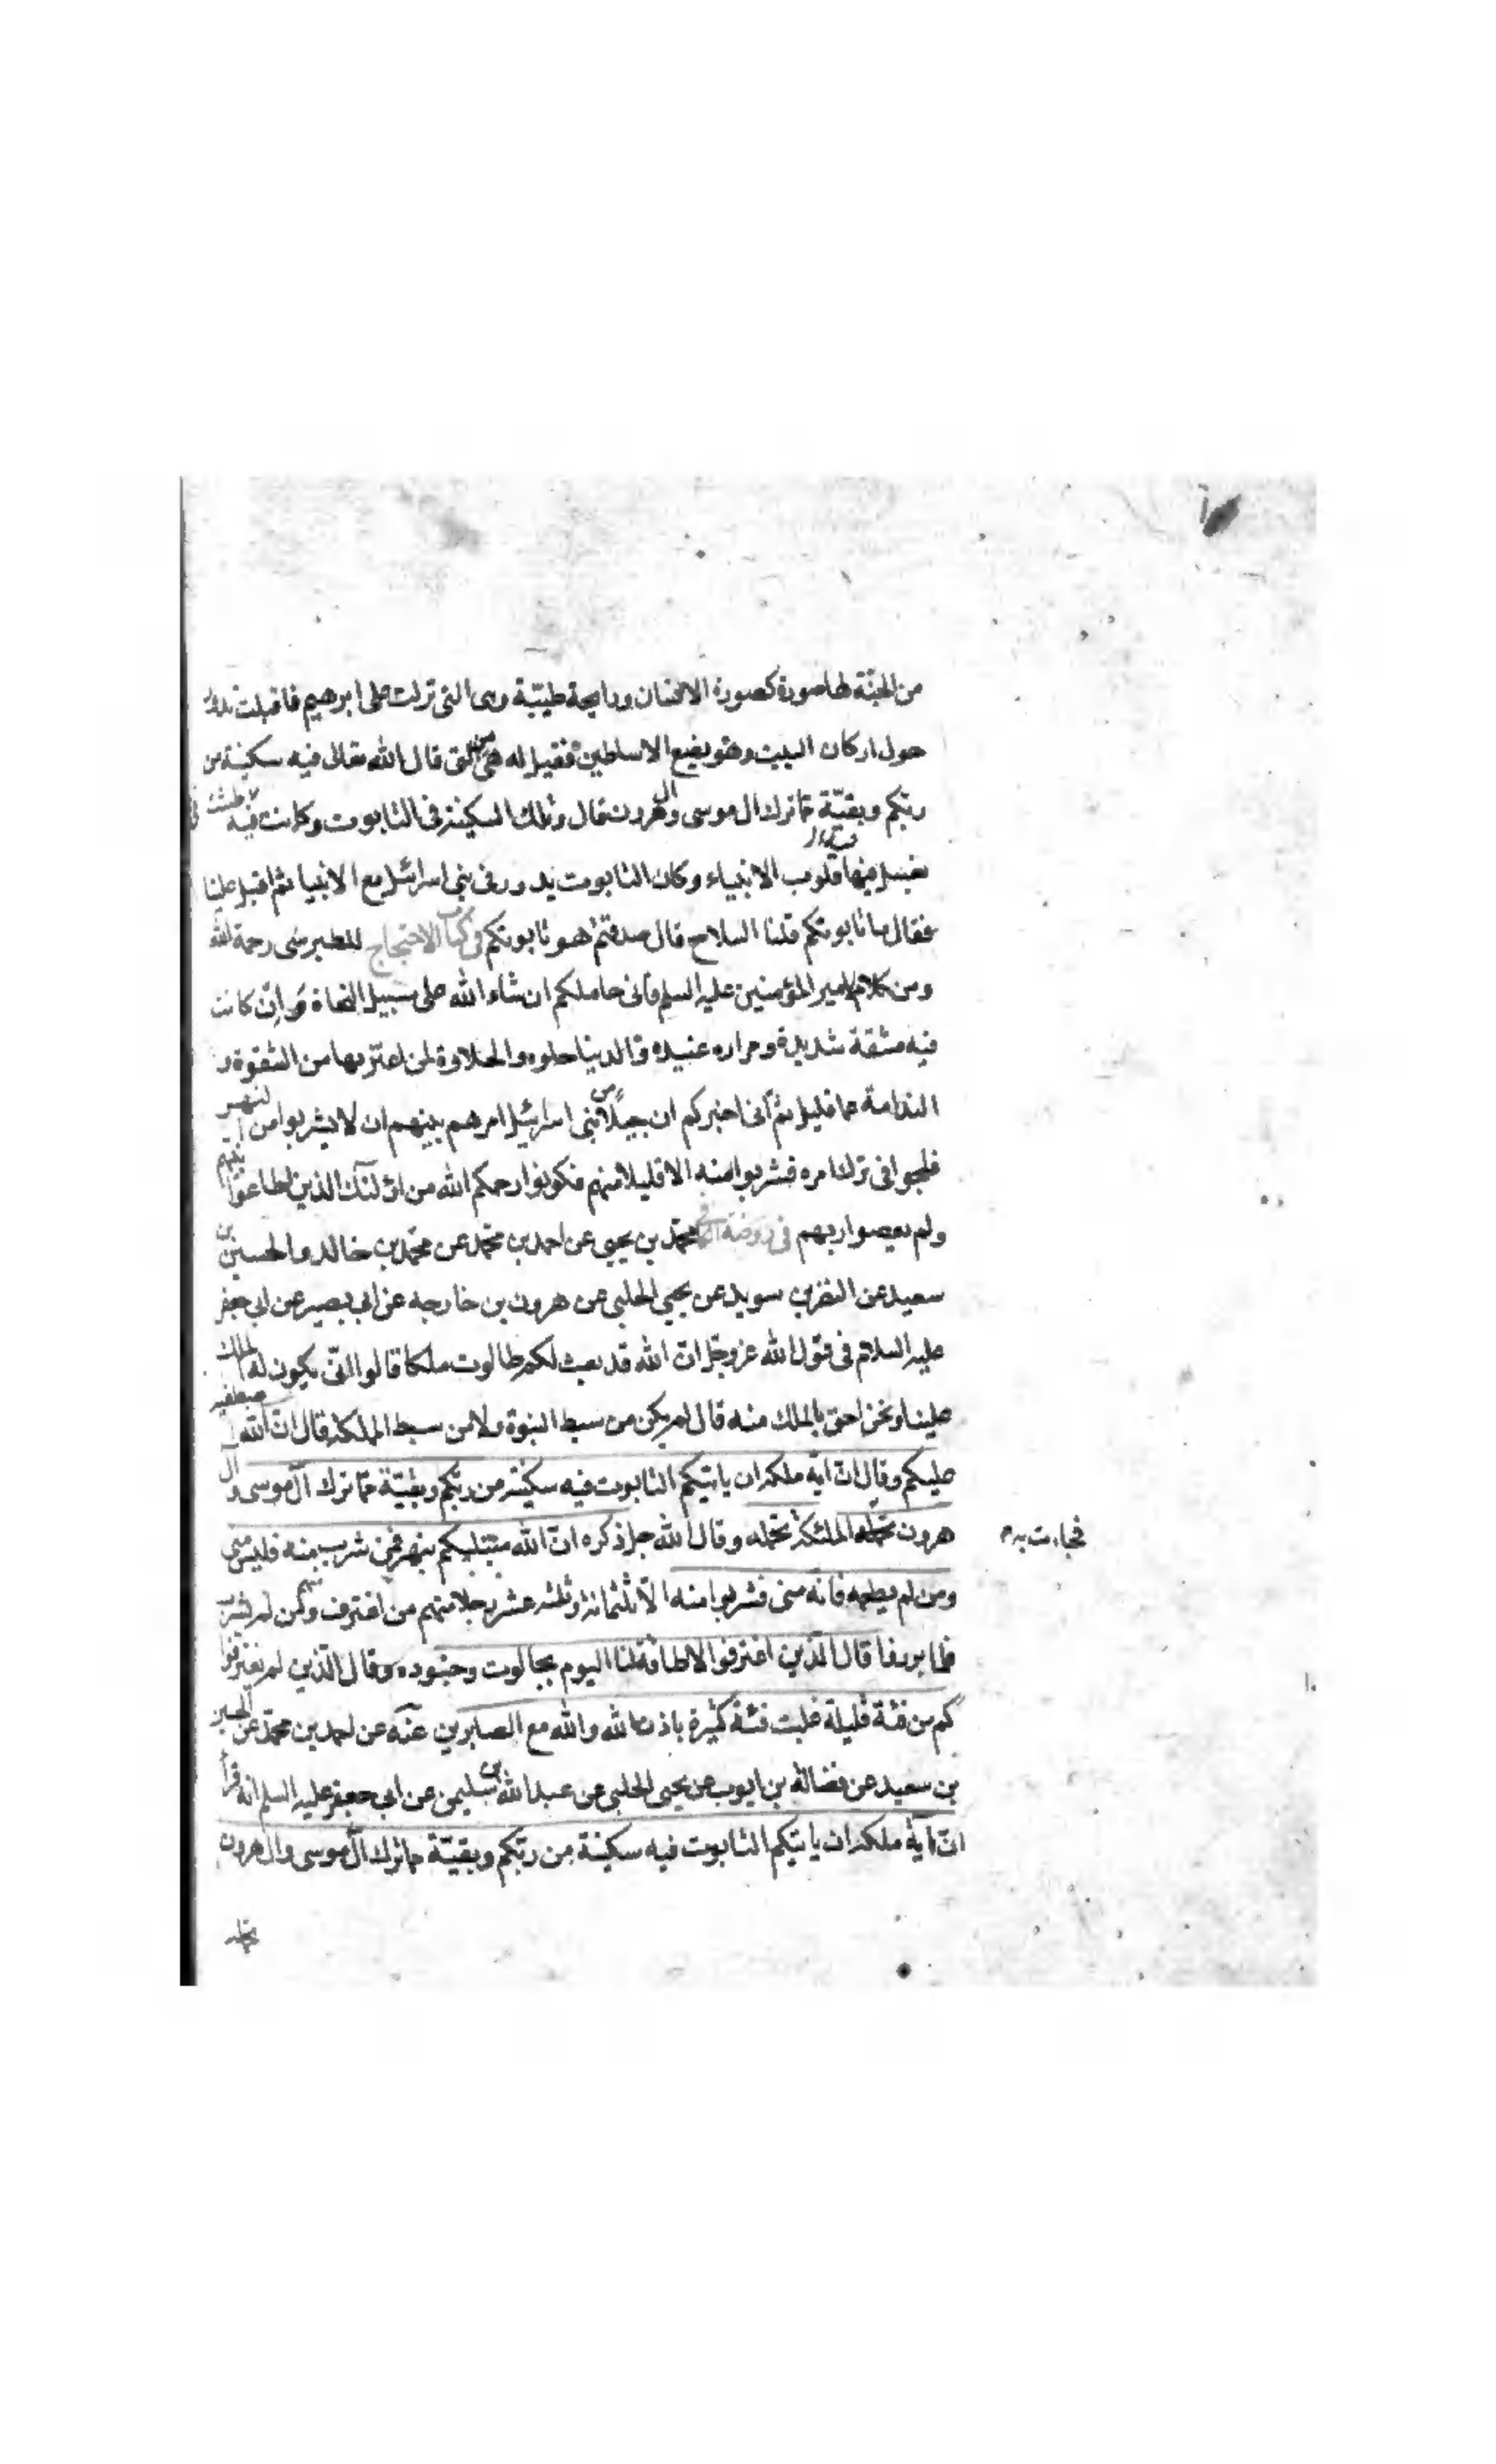 من الجنة لها صورة كصورة الانسان ورايحة طيبة وهى التى نزلت على ابرهيم فاقبلت تدور
حول اركان البيت وهو يضع الاساطين فقيل له هى من التى قال الله تعالى فيه سكينة من
ربكم وبقية مما ترك ال موسى وال هرون قال وتلك السكينة فى التابوت وكانت فيه طشت
تغسل فيها قلوب الانبياء وكان التابوت يدور فى بنى اسرائيل مع الانبيا ثم اقبل علينا
فقال ما تابوتكم قلنا السلاح قال صدقتم هو تابوتكم فى كتاب الاحتجاج للطبرسى رحمة الله
ومن كلام لامير المؤمنين عليه السلم فانى حاملكم ان شاء الله على سبيل النجاة وان كانت
فيه مشقة شديدة ومراره عتيده والدنيا حلوه والحلاوة لمن اغتر بها من الشقوة و
الندامة عما قليل ثم انى اخبركم ان جيلا من بنى اسرائيل امرهم نبيهم ان لا يشربوا من النهر
فلجوا فى ترك امره فشربوا منه الا قليلا منهم فكونوا رحمكم الله من اولئك الذين اطاعوا نبيهم
ولم يعصوا ربهم فى روضة الكافى محمد بن يحيى عن احمد بن محمد عن محمد بن خالد والحسين بن
سعيد عن النضر بن سويد عن يحيى الحلبى عن هرون بن خارجه عن ابى بصير عن ابى جعفر
عليه السلام فى قول الله عز وجل ان الله قد بعث لكم طالوت ملكا قالوا انى يكون له الملك
علينا ونحن احق بالملك منه قال لم يكن من سبط النبوة ولا من سبط المملكة قال ان الله اصطفيه
عليكم وقال ان اية ملكه ان ياتيكم التابوت فيه سكينة من ربكم وبقية مما ترك آل موسى وآل
هرون تحمله الملئكة تحمله وقال الله جل ذكره ان الله مبتليكم بنهر فمن شرب منه فليس منى
فجاءت به م
ومن لم يطعمه فانه منى فشربوا منه الا ثلثمائة وثلثه عشر رجلا منهم من اغترف ومنهم من لم يشرب
فلما برزوا قال الذين اغترفوا لا طاقة لنا اليوم بجالوت وجنوده وقال الذين لم يغترفوا
كم من فئة قليلة غلبت فئة كثيرة باذن الله والله مع الصابرين عنه عن احمد بن محمد عن الحسين
بن سعيد عن فضالة بن ايوب عن يحيى الحلبى عن عبد الله بن سليمن عن ابى جعفر عليه السلم انه قرأ
ان اية ملكه ان ياتيكم التابوت فيه سكينة من ربكم وبقية مما ترك آل موسى وال هرون